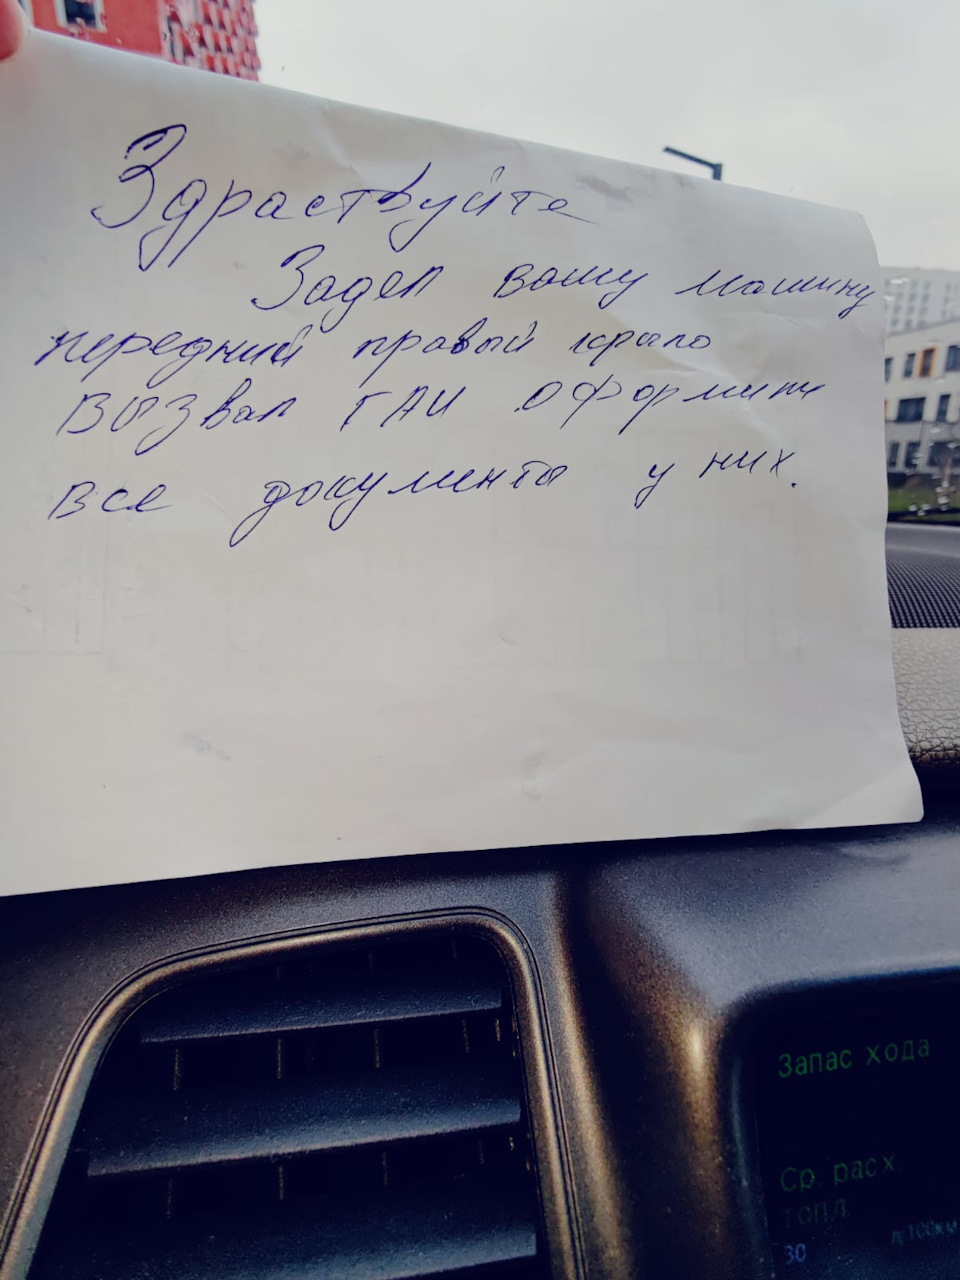 Здраствуйте
Задел вашу машину
передний правый крыло
Вызвал ГАИ оформили
все документы у них.
Запас хода
Ср. расх.
топл.
30 л/100км